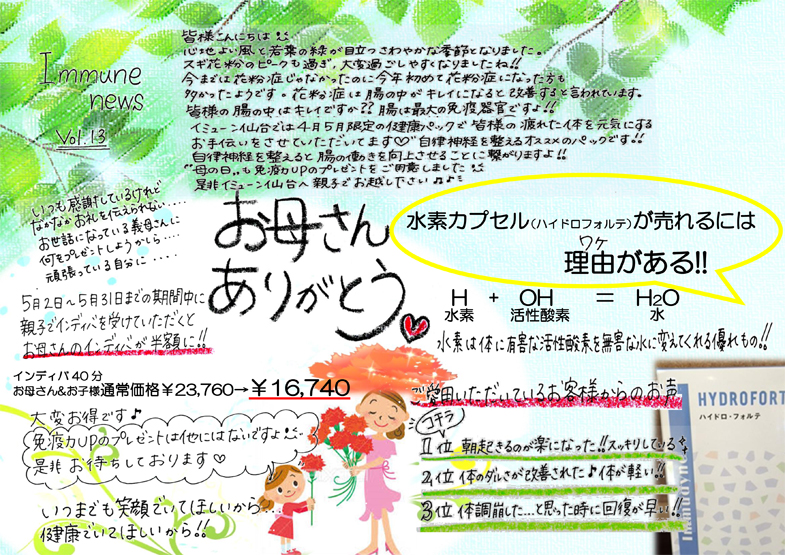 Immune
news
Vol.13
皆様こんにちは
心地よい風と若葉の緑が目立つさわやかな季節となりました。
スギ花粉のピークも過ぎ、大変過ごしやすくなりましたね!!
今までは花粉症じゃなかったのに今年初めて花粉症になった方も
多かったようです。花粉症は腸の中がキレイになると改善すると言われています。
皆様の腸の中はキレイですか?? 腸は最大の免疫器官ですよ!!
イミューン仙台では4月5月限定の健康パックで皆様の疲れた体を元気にする
お手伝いをさせていただいてます♡ 自律神経を整えるオススメのパックです!!
自律神経を整えると腸の働きを向上させることに繋がりますよ!!
"母の日"も免疫力UPのプレゼントをご用意しました
是非イミューン仙台へ親子でお越し下さい♪♪
いつも感謝しているけれど
なかなかお礼を伝えられない・・・・
お世話になっている義母さんに
何をプレゼントしようかしら・・・・
頑張っている自分に・・・・・
お母さん
ありがとう
5月2日～5月31日までの期間中に
親子でインディバを受けていただくと
お母さんのインディバが半額に!!
インディバ40分
お母さん&お子様通常価格￥23,760→￥16,740
大変お得です♪
免疫力UPのプレゼントは他にはないですよ
是非お待ちしております♡
いつまでも笑顔でいてほしいから...
健康でいてほしいから!!
水素カプセル(ハイドロフォルテ)が売れるには
ワケ
理由がある!!
H + OH ＝ H2O
水素 活性酸素 水
水素は体に有害な活性酸素を無害な水に変えてくれる優れもの!!
ご愛用いただいているお客様からのお声
コチラ
1位 朝起きるのが楽になった!!スッキリしている
2位 体のダルさが改善された♪体が軽い!!
3位 体調崩した...と思った時に回復が早い!!
HYDROFORT
ハイドロ・フォルテ
Immudyne